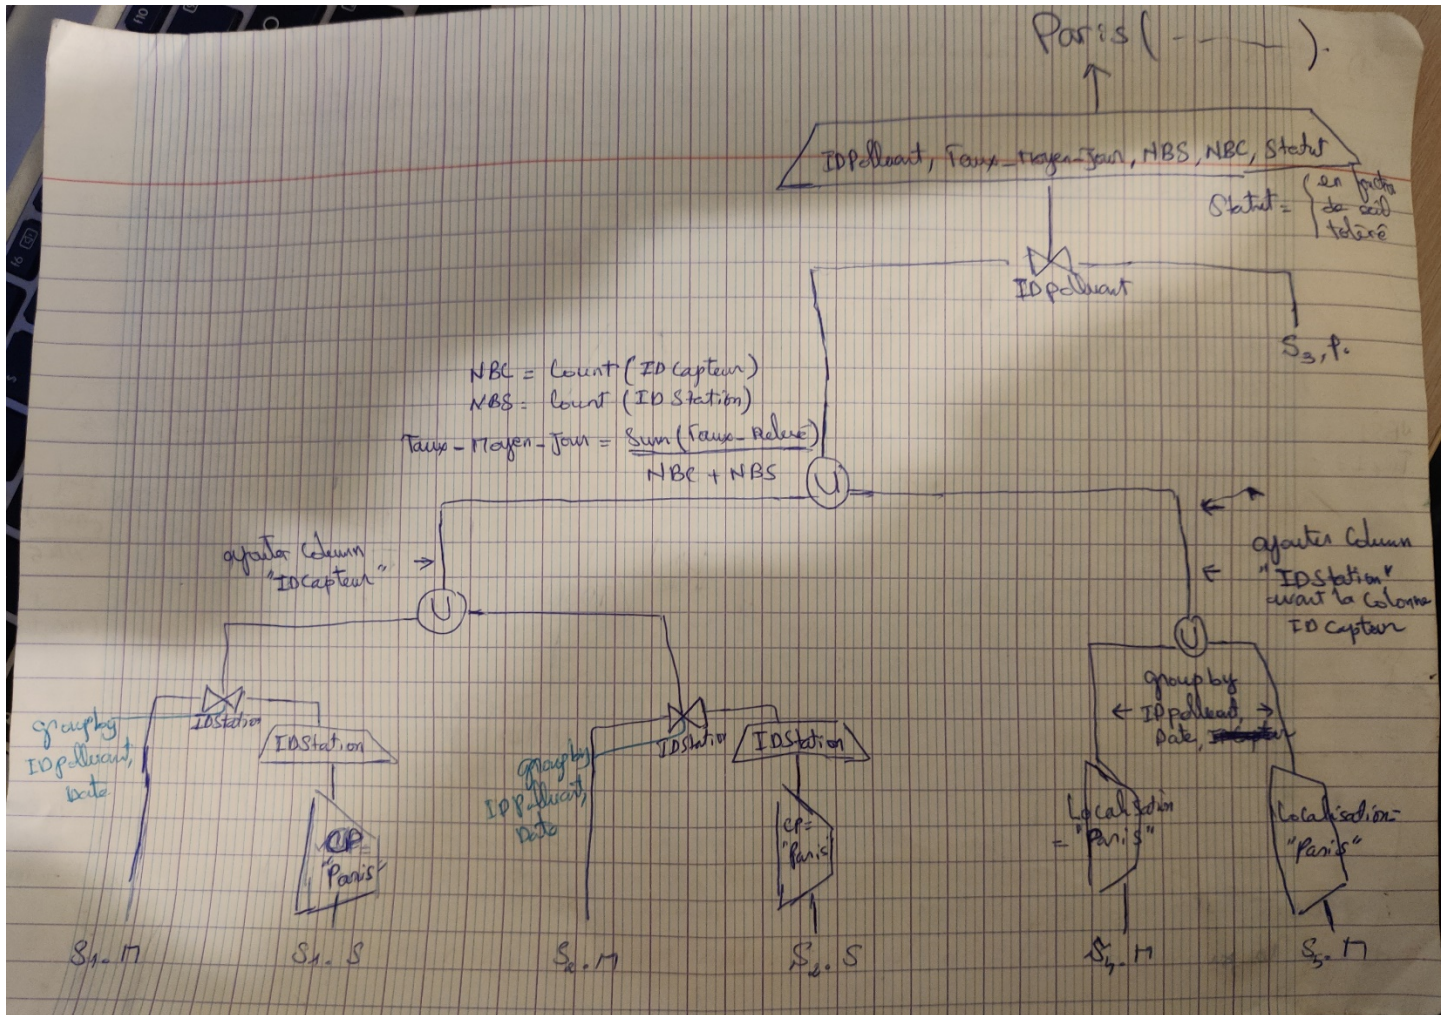 Paris ( ------- ).
IDPolluant, Taux_Moyen_Jour, NBS, NBC, Statut
Statut = { en fonction
de seuil
toléré
IDpolluant
S3, P.
NBC = Count (ID Capteur)
NBS = Count (ID Station)
Taux_Moyen_Jour = Sum (Taux_Relevé)
NBC + NBS
U
ajouter Column
"IDCapteur"
ajouter Column
"IDStation"
avant la colonne
ID Capteur
U
U
group by
IDpolluant,
Date,
IDStation
group by
IDpolluant,
Date
IDStation
IDStation
group by
IDPolluant,
Date
IDStation
CP =
"Paris"
CP =
"Paris"
Localisation
= "Paris"
Localisation =
"Paris"
S1.M
S1.S
S2.M
S2.S